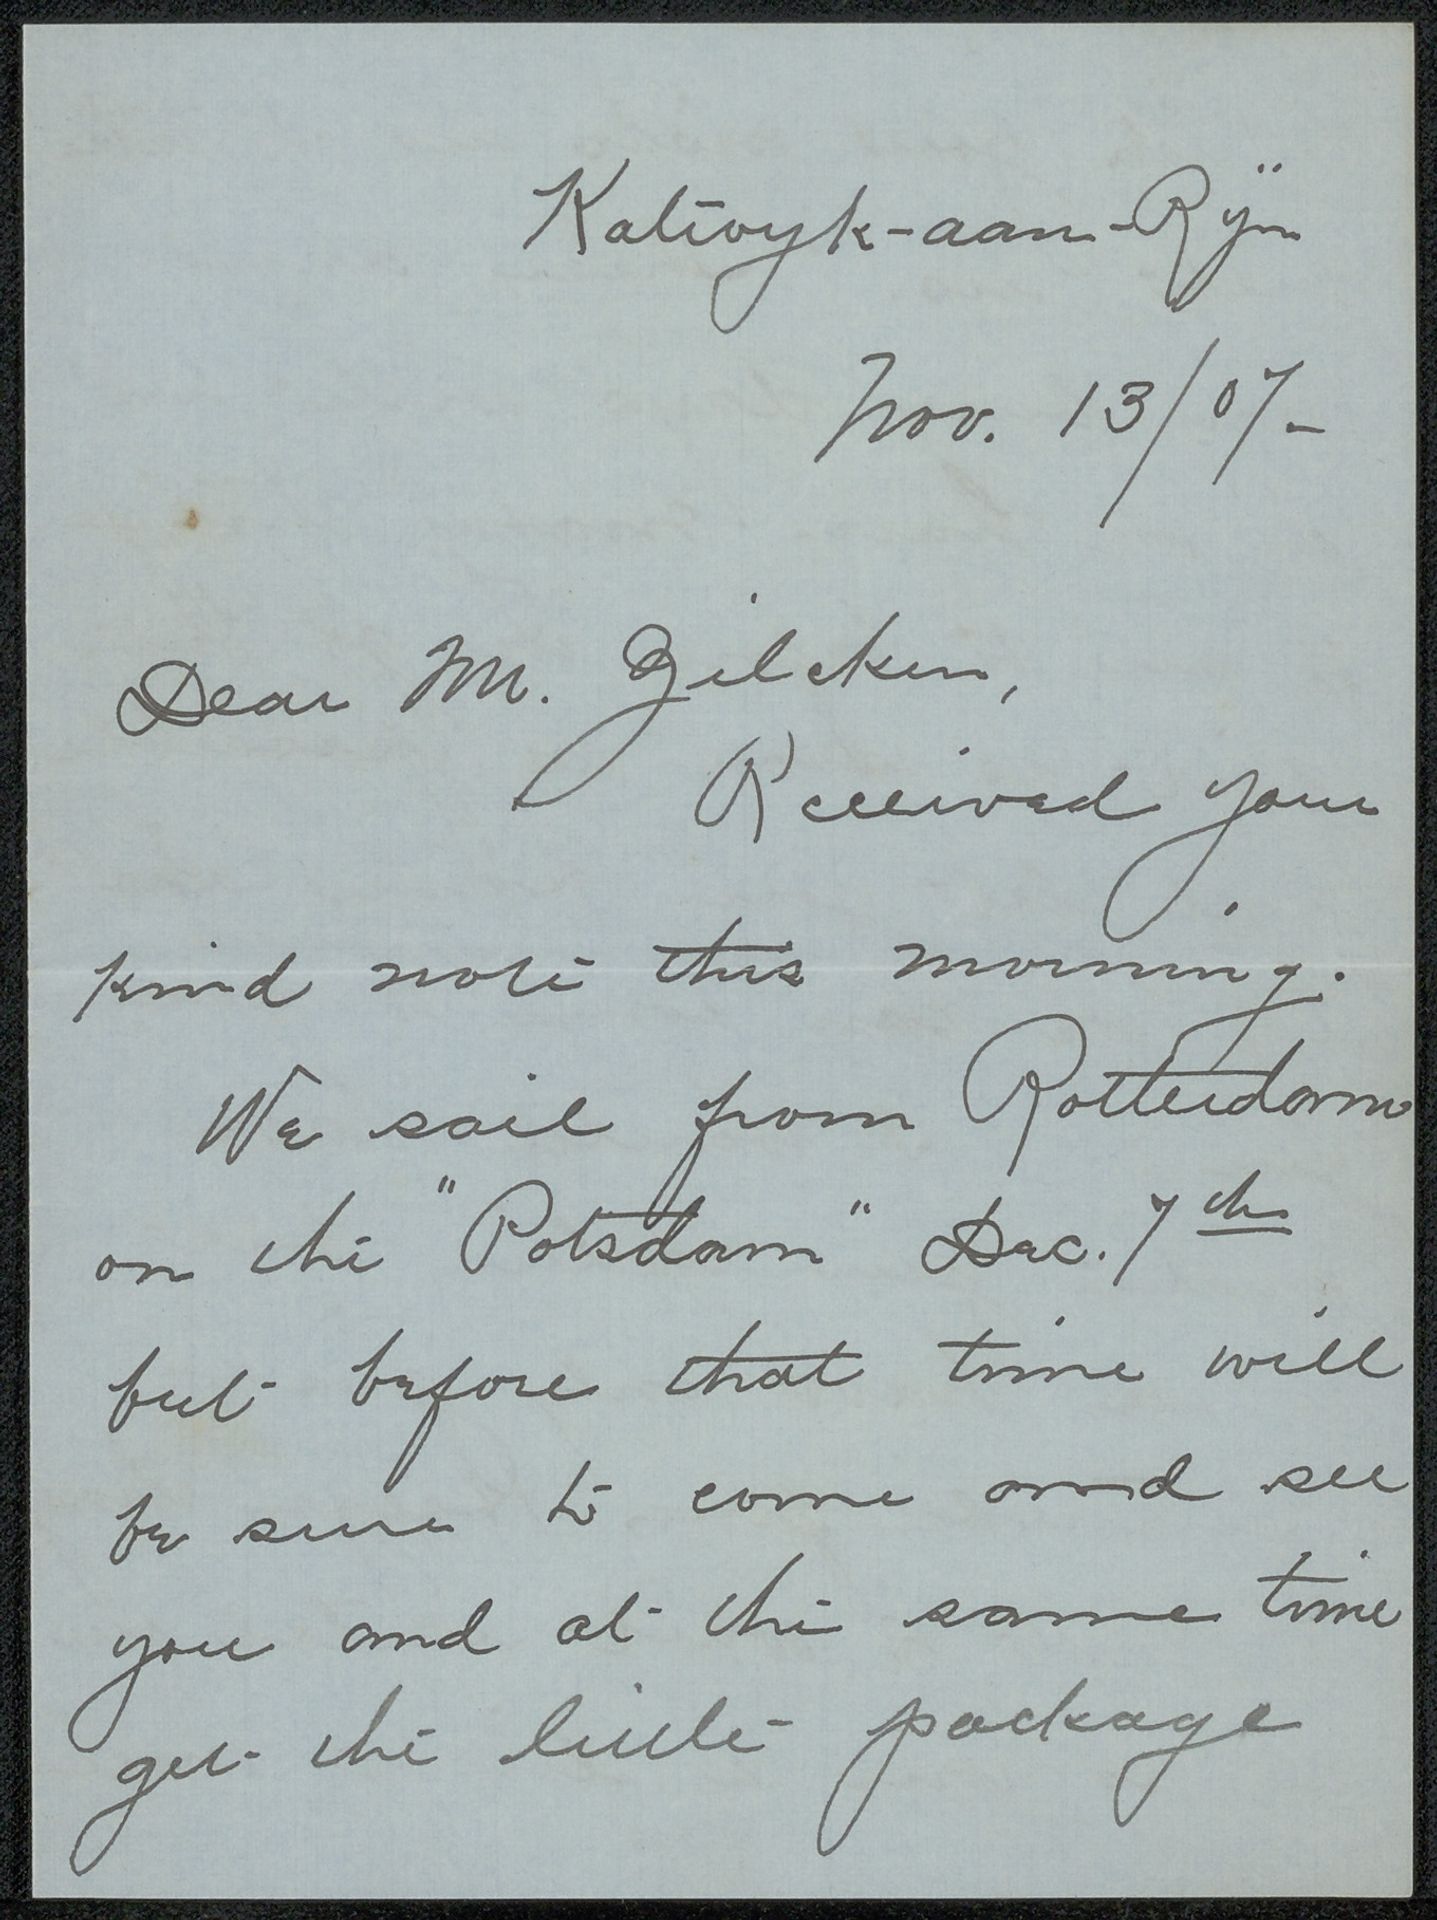 Katwyk-aan-Rÿn
Nov. 13/07-
Dear M. Zilcken,
Received your
kind note this morning.
We sail from Rotterdam
on the "Potsdam" Dec. 7th
but before that time will
be sure to come and see
you and at the same time
get the little package